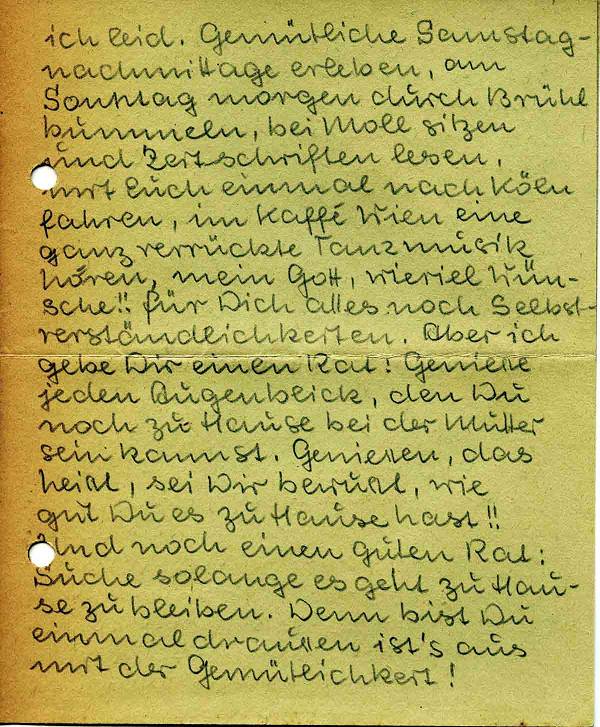 ich leid. Gemütliche Samstag-
nachmittage erleben, am
Sonntag morgen durch Brühl
bummeln, bei Moll sitzen
und Zeitschriften lesen,
mit Euch einmal nach Köln
fahren, im Kaffé Wien eine
ganz verrückte Tanzmusik
hören, mein Gott, wieviel Wün-
sche!! für Dich alles noch Selbst-
verständlichkeiten. Aber ich
gebe Dir einen Rat: Genieße
jeden Augenblick, den Du
noch zu Hause bei der Mutter
sein kannst. Genießen, das
heißt, sei Dir bewußt, wie
gut Du es zu Hause hast!!
Und noch einen guten Rat:
Suche solange es geht zu Hau-
se zu bleiben. Denn bist Du
einmal draußen ist's aus
mit der Gemütlichkeit!